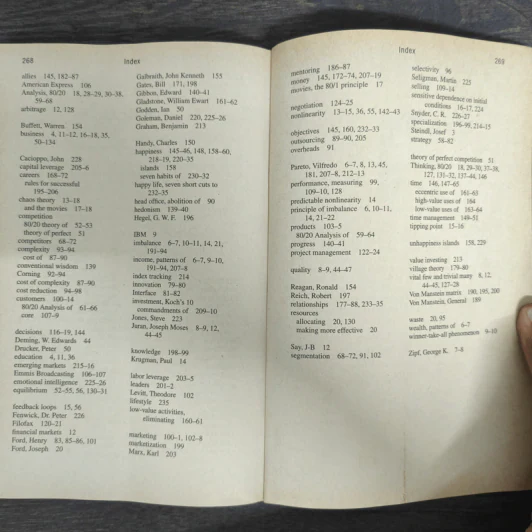 268
Index
allies 145, 182–87
American Express 106
Analysis, 80/20 18, 28–29, 30–38,
59–66
arbitrage 12, 128
Buffett, Warren 154
business 4, 11–12, 16–18, 35,
50–134
Cacioppo, John 228
capital leverage 205–6
careers 168–72
rules for successful
195–206
chaos theory 13–18
and the movies 17–18
competition
80/20 theory of 52–53
theory of perfect 51
competitors 68–72
complexity 93–94
cost of 87–90
conventional wisdom 139
Corning 92–94
cost of complexity 87–90
cost reduction 94–98
customers 100–14
80/20 Analysis of 61–66
core 107–9
decisions 116–19, 144
Deming, W Edwards 44
Drucker, Peter 50
education 4, 11, 36
emerging markets 215–16
Emmis Broadcasting 106–107
emotional intelligence 225–26
equilibrium 52–55, 56, 130–31
feedback loops 15, 56
Fenwick, Dr. Peter 226
Filofax 120–21
financial markets 12
Ford, Henry 83, 85–86, 101
Ford, Joseph 20
Galbraith, John Kenneth 155
Gates, Bill 171, 198
Gibbon, Edward 140–41
Gladstone, William Ewart 161–62
Godden, Ian 50
Goleman, Daniel 220, 225–26
Graham, Benjamin 213
Handy, Charles 150
happiness 145–46, 148, 158–60,
218–19, 220–35
islands 158
seven habits of 230–32
happy life, seven short cuts to
232–35
head office, abolition of 90
hedonism 139–40
Hegel, G. W. F. 196
IBM 9
imbalance 6–7, 10–11, 14, 21,
191–94
income, patterns of 6–7, 9–10,
191–94, 207–8
index tracking 214
innovation 79–80
Interface 81–82
investment, Koch's 10
commandments of 209–10
Jones, Steve 223
Juran, Joseph Moses 8–9, 12,
44–45
knowledge 198–99
Krugman, Paul 14
labor leverage 203–5
leaders 201–2
Levitt, Theodore 102
lifestyle 235
low-value activities,
eliminating 160–61
marketing 100–1, 102–8
marketization 199
Marx, Karl 203
Index
269
mentoring 186–87
money 145, 172–74, 207–19
movies, the 80/1 principle 17
negotiation 124–25
nonlinearity 13–15, 36, 55, 142–43
objectives 145, 160, 232–33
outsourcing 89–90, 205
overheads 91
Pareto, Vilfredo 6–7, 8, 13, 45,
181, 207–8, 212–13
performance, measuring 99,
109–10, 128
predictable nonlinearity 14
principle of imbalance 6, 10–11,
14, 21–22
products 103–5
80/20 Analysis of 59–64
progress 140–41
project management 122–24
quality 8–9, 44–47
Reagan, Ronald 154
Reich, Robert 197
relationships 177–88, 233–35
resources
allocating 20, 130
making more effective 20
Say, J-B 12
segmentation 68–72, 91, 102
selectivity 96
Seligman, Martin 225
selling 109–14
sensitive dependence on initial
conditions 16–17, 224
Snyder, C. R. 226–27
specialization 196–99, 214–15
Steindl, Josef 3
strategy 56–82
theory of perfect competition 51
Thinking, 80/20 18, 29–30, 37–38,
127, 131–32, 137–44, 146
time 146, 147–65
eccentric use of 161–63
high-value uses of 164
low-value uses of 163–64
time management 149–51
tipping point 15–16
unhappiness islands 158, 229
value investing 213
village theory 179–80
vital few and trivial many 8, 12,
44–45, 127–28
Von Manstein matrix 190, 195, 200
Von Manstein, General 189
waste 20, 95
wealth, patterns of 6–7
winner-take-all phenomenon 9–10
Zipf, George K. 7–8